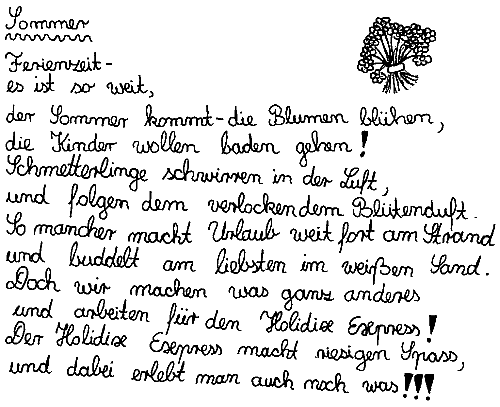 Sommer
Ferienzeit -
es ist so weit,
der Sommer kommt - die Blumen blühen,
die Kinder wollen baden gehen!
Schmetterlinge schwirren in der Luft,
und folgen dem verlockendem Blütenduft.
So mancher macht Urlaub weit fort am Strand
und buddelt am liebsten im weißen Sand.
Doch wir machen was ganz anderes
und arbeiten für den Holidix Exepress!
Der Holidix Exepress macht riesigen Spass,
und dabei erlebt man auch noch was!!!